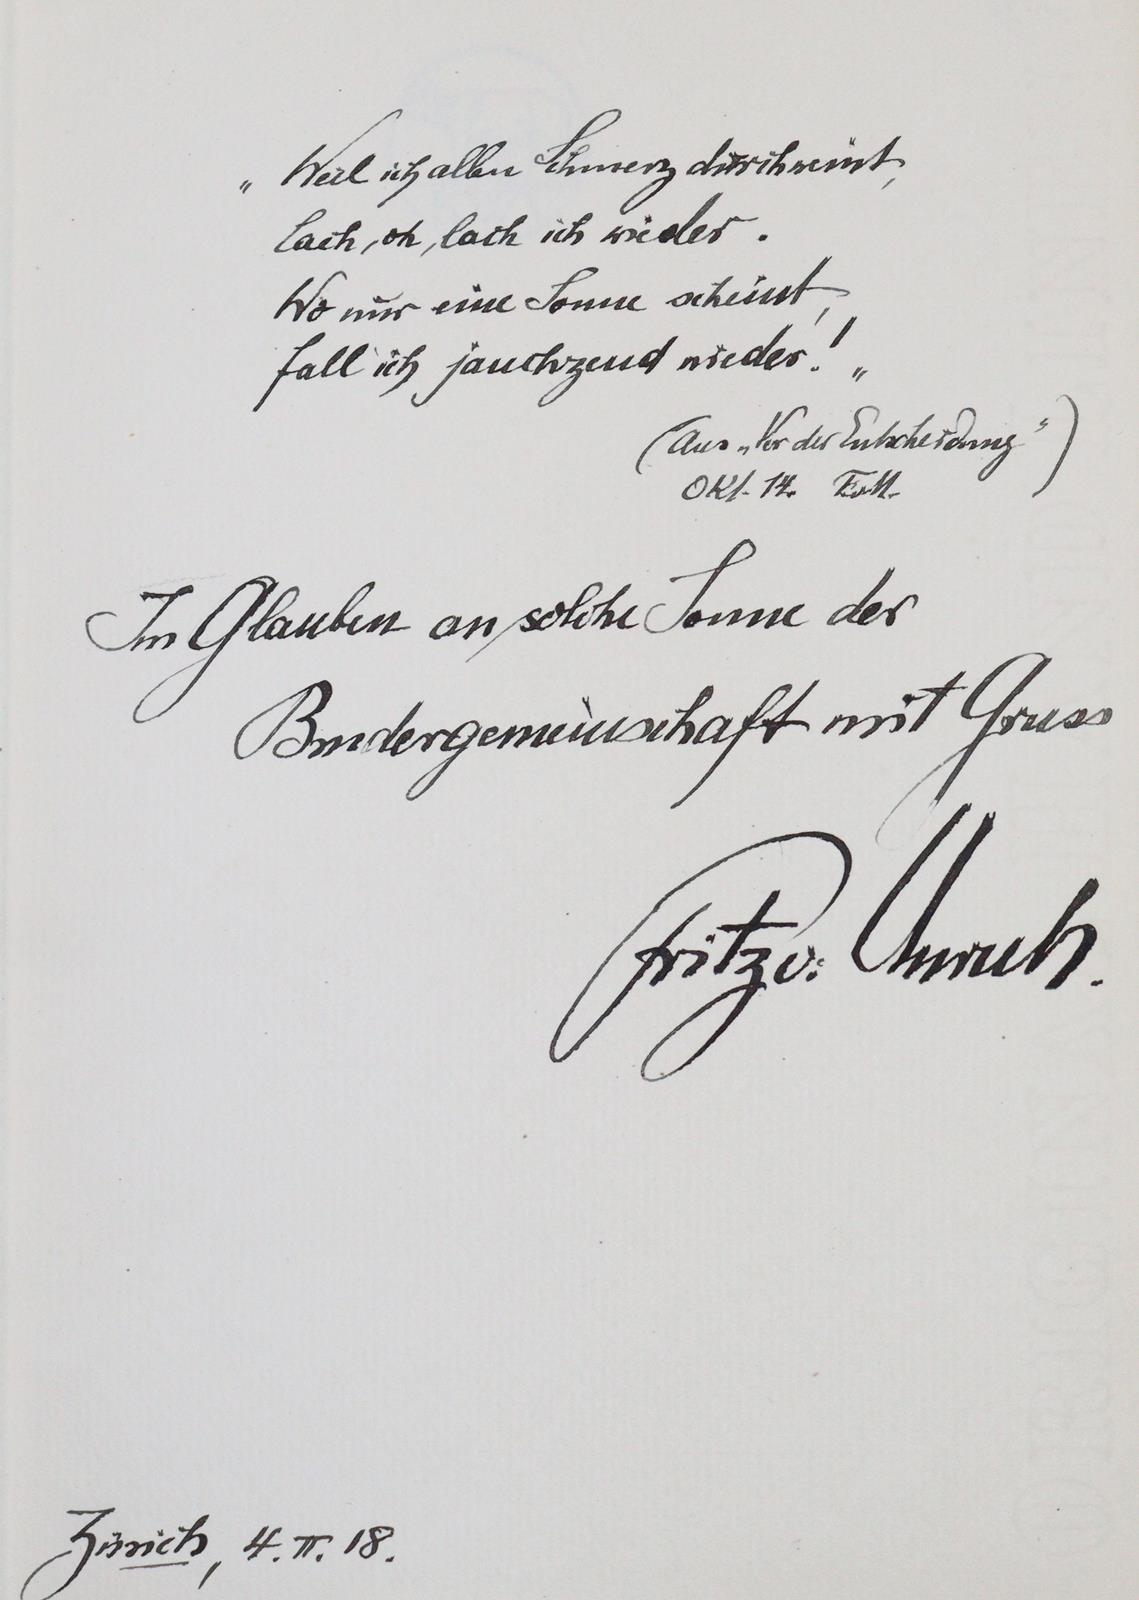 „Weil ich allen Schmerz durchweint,
lach, oh, lach ich wieder.
Wo nur eine Sonne scheint,
fall ich jauchzend nieder!„
(Aus „Vor der Entscheidung"
Okt. 14. F.v.U.)
Im Glauben an solche Sonne der
Brudergemeinschaft mit Gruss
Fritz v: Unruh.
Zürich, 4. II. 18.